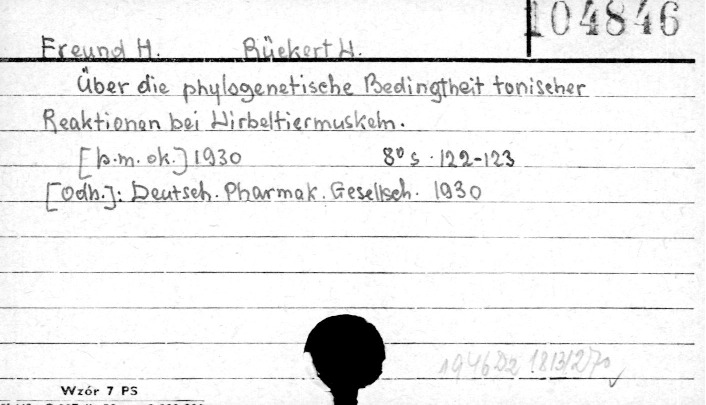 104846
Freund H. Rückert W.
Über die phylogenetische Bedingtheit tonischer
Reaktionen bei Wirbeltiermuskeln.
[b.m. ok.] 1930 8° s. 122-123
[Odb.]: Deutsch. Pharmak. Gesellsch. 1930
1946
Wzór 7 PS